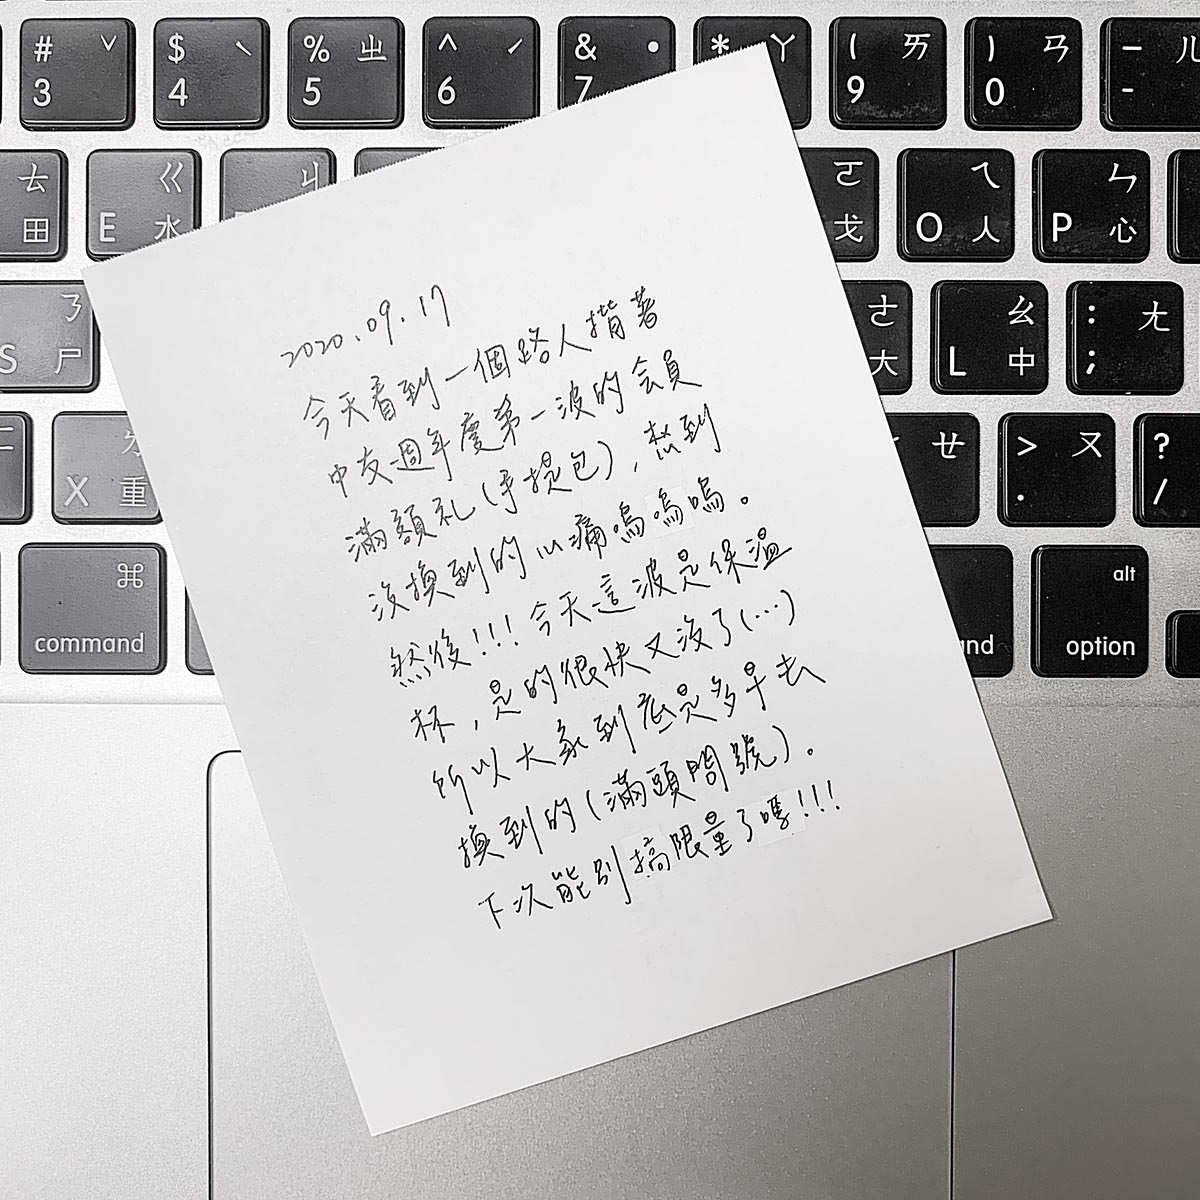 # ˇ 3
$ ˋ 4
% ㄓ 5
^ ˊ 6
& ˙ 7
* ㄚ
( ㄞ 9
) ㄢ 0
— ㄦ -
ㄊ 田
ㄍ E 水
ㄐ
ㄛ 戈
ㄟ O 人
ㄣ P 心
ㄋ S 尸
ㄜ 大
ㄠ L 中
: ㄤ ;
ㄌ X 重
ㄝ
> ㄡ .
? /
⌘ command
alt option
2020.09.17
今天看到一個路人揹著
中友週年度第一波的会員
滿額礼(手提包),想到
沒換到的心痛嗚嗚嗚。
然後!!!今天這波是保溫
杯,是的很快又沒了(...)
所以大家到底是多早去
換到的(滿頭問號)。
下次能別搞限量了嗎!!!